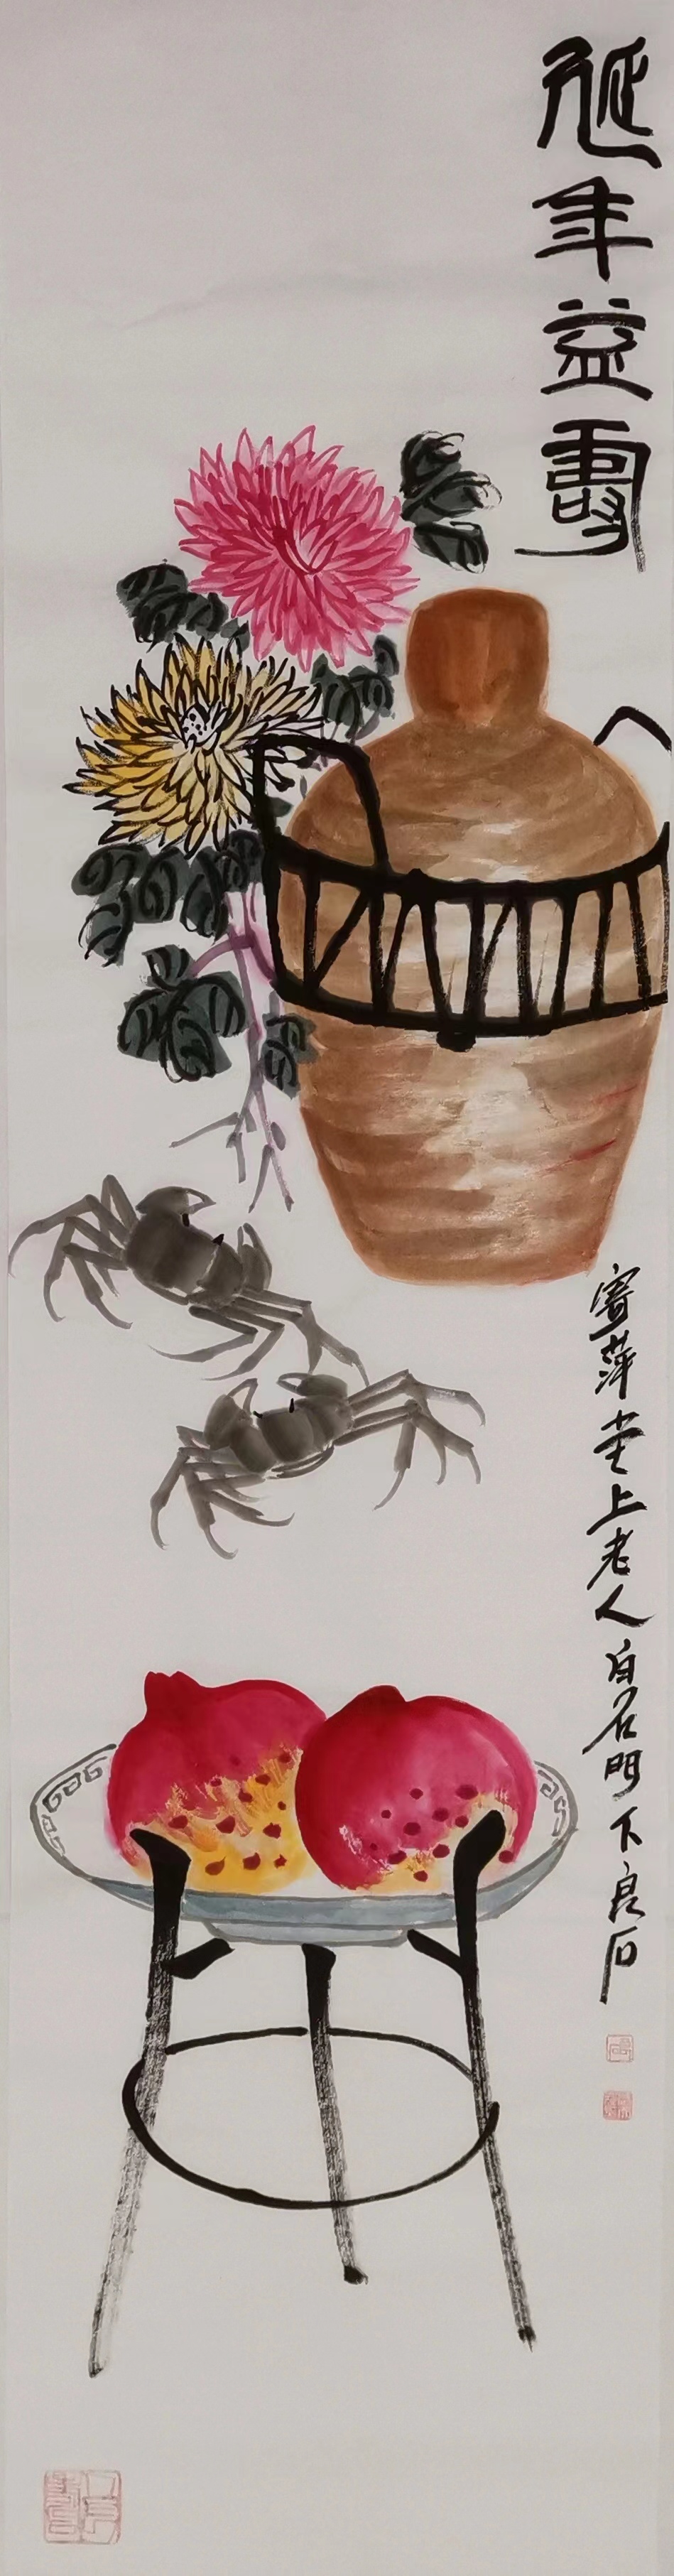 延年益壽
寄萍堂上老人白石門下良石